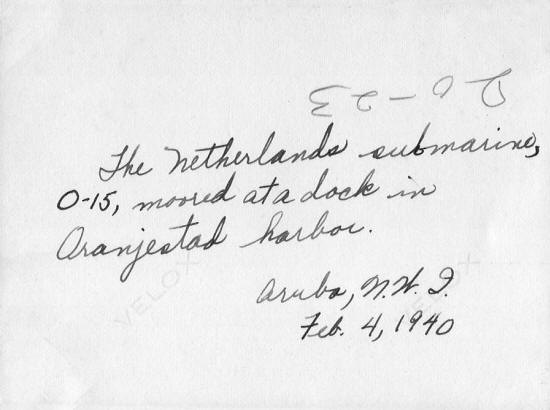 The Netherlands submarine,
O-15, moored at a dock in
Oranjestad harbor.
Aruba, N.W.I.
Feb. 4, 1940
VELOX
VELOX